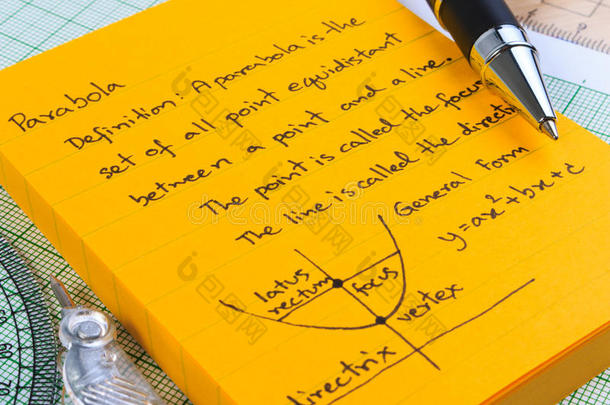 Parabola
Definition: A parabola is the
set of all point equidistant
between a point and a line.
The point is called the focus
The line is called the directrix
General Form
y=ax²+bx+c
latus
rectum
focus
vertex
directrix